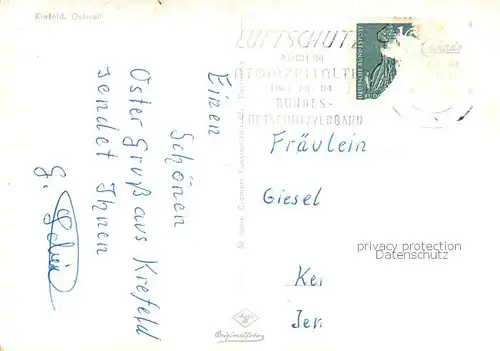 Krefeld, Ostwall
LUFTSCHUTZ
AUCH IM
ATOMZEITALTER
BUNDES-
LUFTSCHUTZVERBAND
DEUTSCHE BUNDESPOST
Einen
Schönen
Oster Gruß aus Krefeld
sendet Ihnen
G.
Fräulein
Giesel
Ke
Jen
privacy protection
Datenschutz
Agfa
Originalfoto